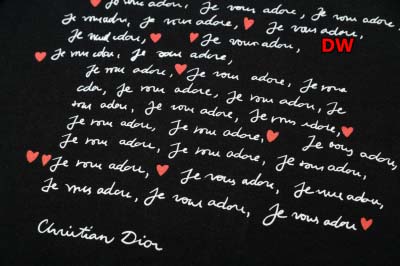 Je vous adore, Je vous adore, Je vous adore,
Je vous adore, Je vous adore, Je vous adore,
Je vous adore, Je vous adore,
DW
Je vous adore, Je vous adore,
Je vous adore, Je vous adore, Je vous
adore, Je vous adore, Je vous adore, Je
vous adore, Je vous adore, Je vous adore,
Je vous adore, Je vous adore, Je vous adore,
Je vous adore, Je vous adore, Je vous adore,
Je vous adore, Je vous adore, Je vous adore,
Je vous adore, Je vous adore, Je vous adore
Christian Dior